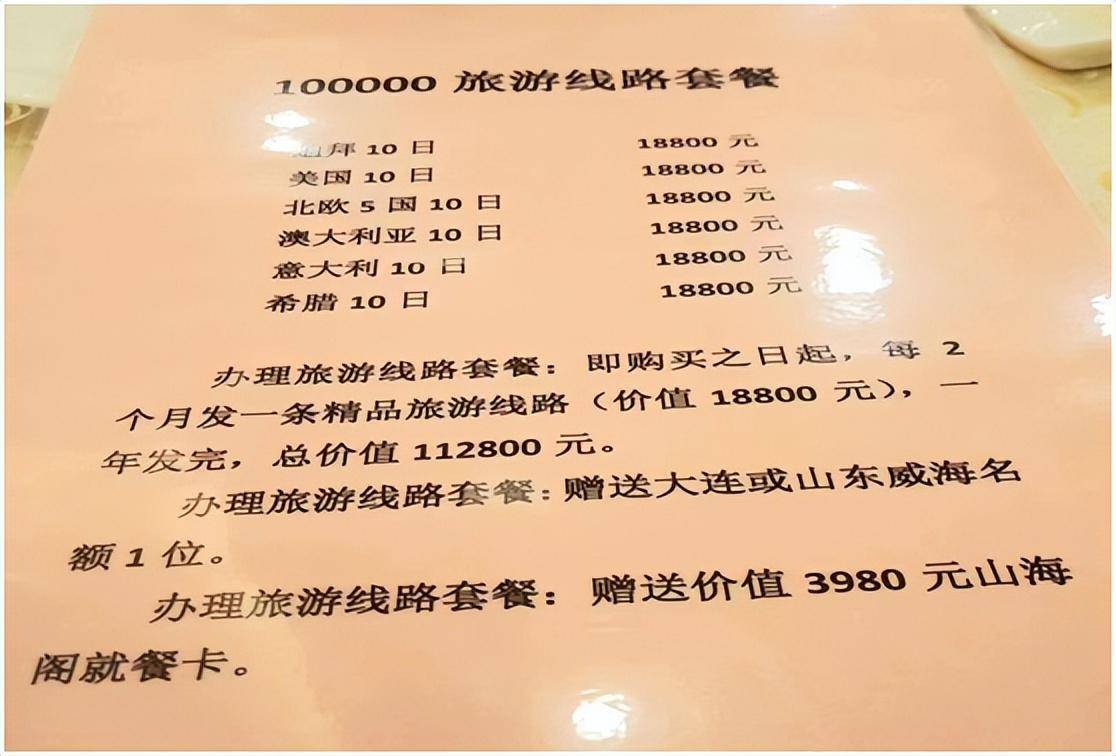 100000 旅游线路套餐
迪拜 10 日 18800 元
美国 10 日 18800 元
北欧 5 国 10 日 18800 元
澳大利亚 10 日 18800 元
意大利 10 日 18800 元
希腊 10 日 18800 元
办理旅游线路套餐：即购买之日起，每 2
个月发一条精品旅游线路（价值 18800 元），一
年发完，总价值 112800 元。
办理旅游线路套餐：赠送大连或山东威海名
额 1 位。
办理旅游线路套餐：赠送价值 3980 元山海
阁就餐卡。